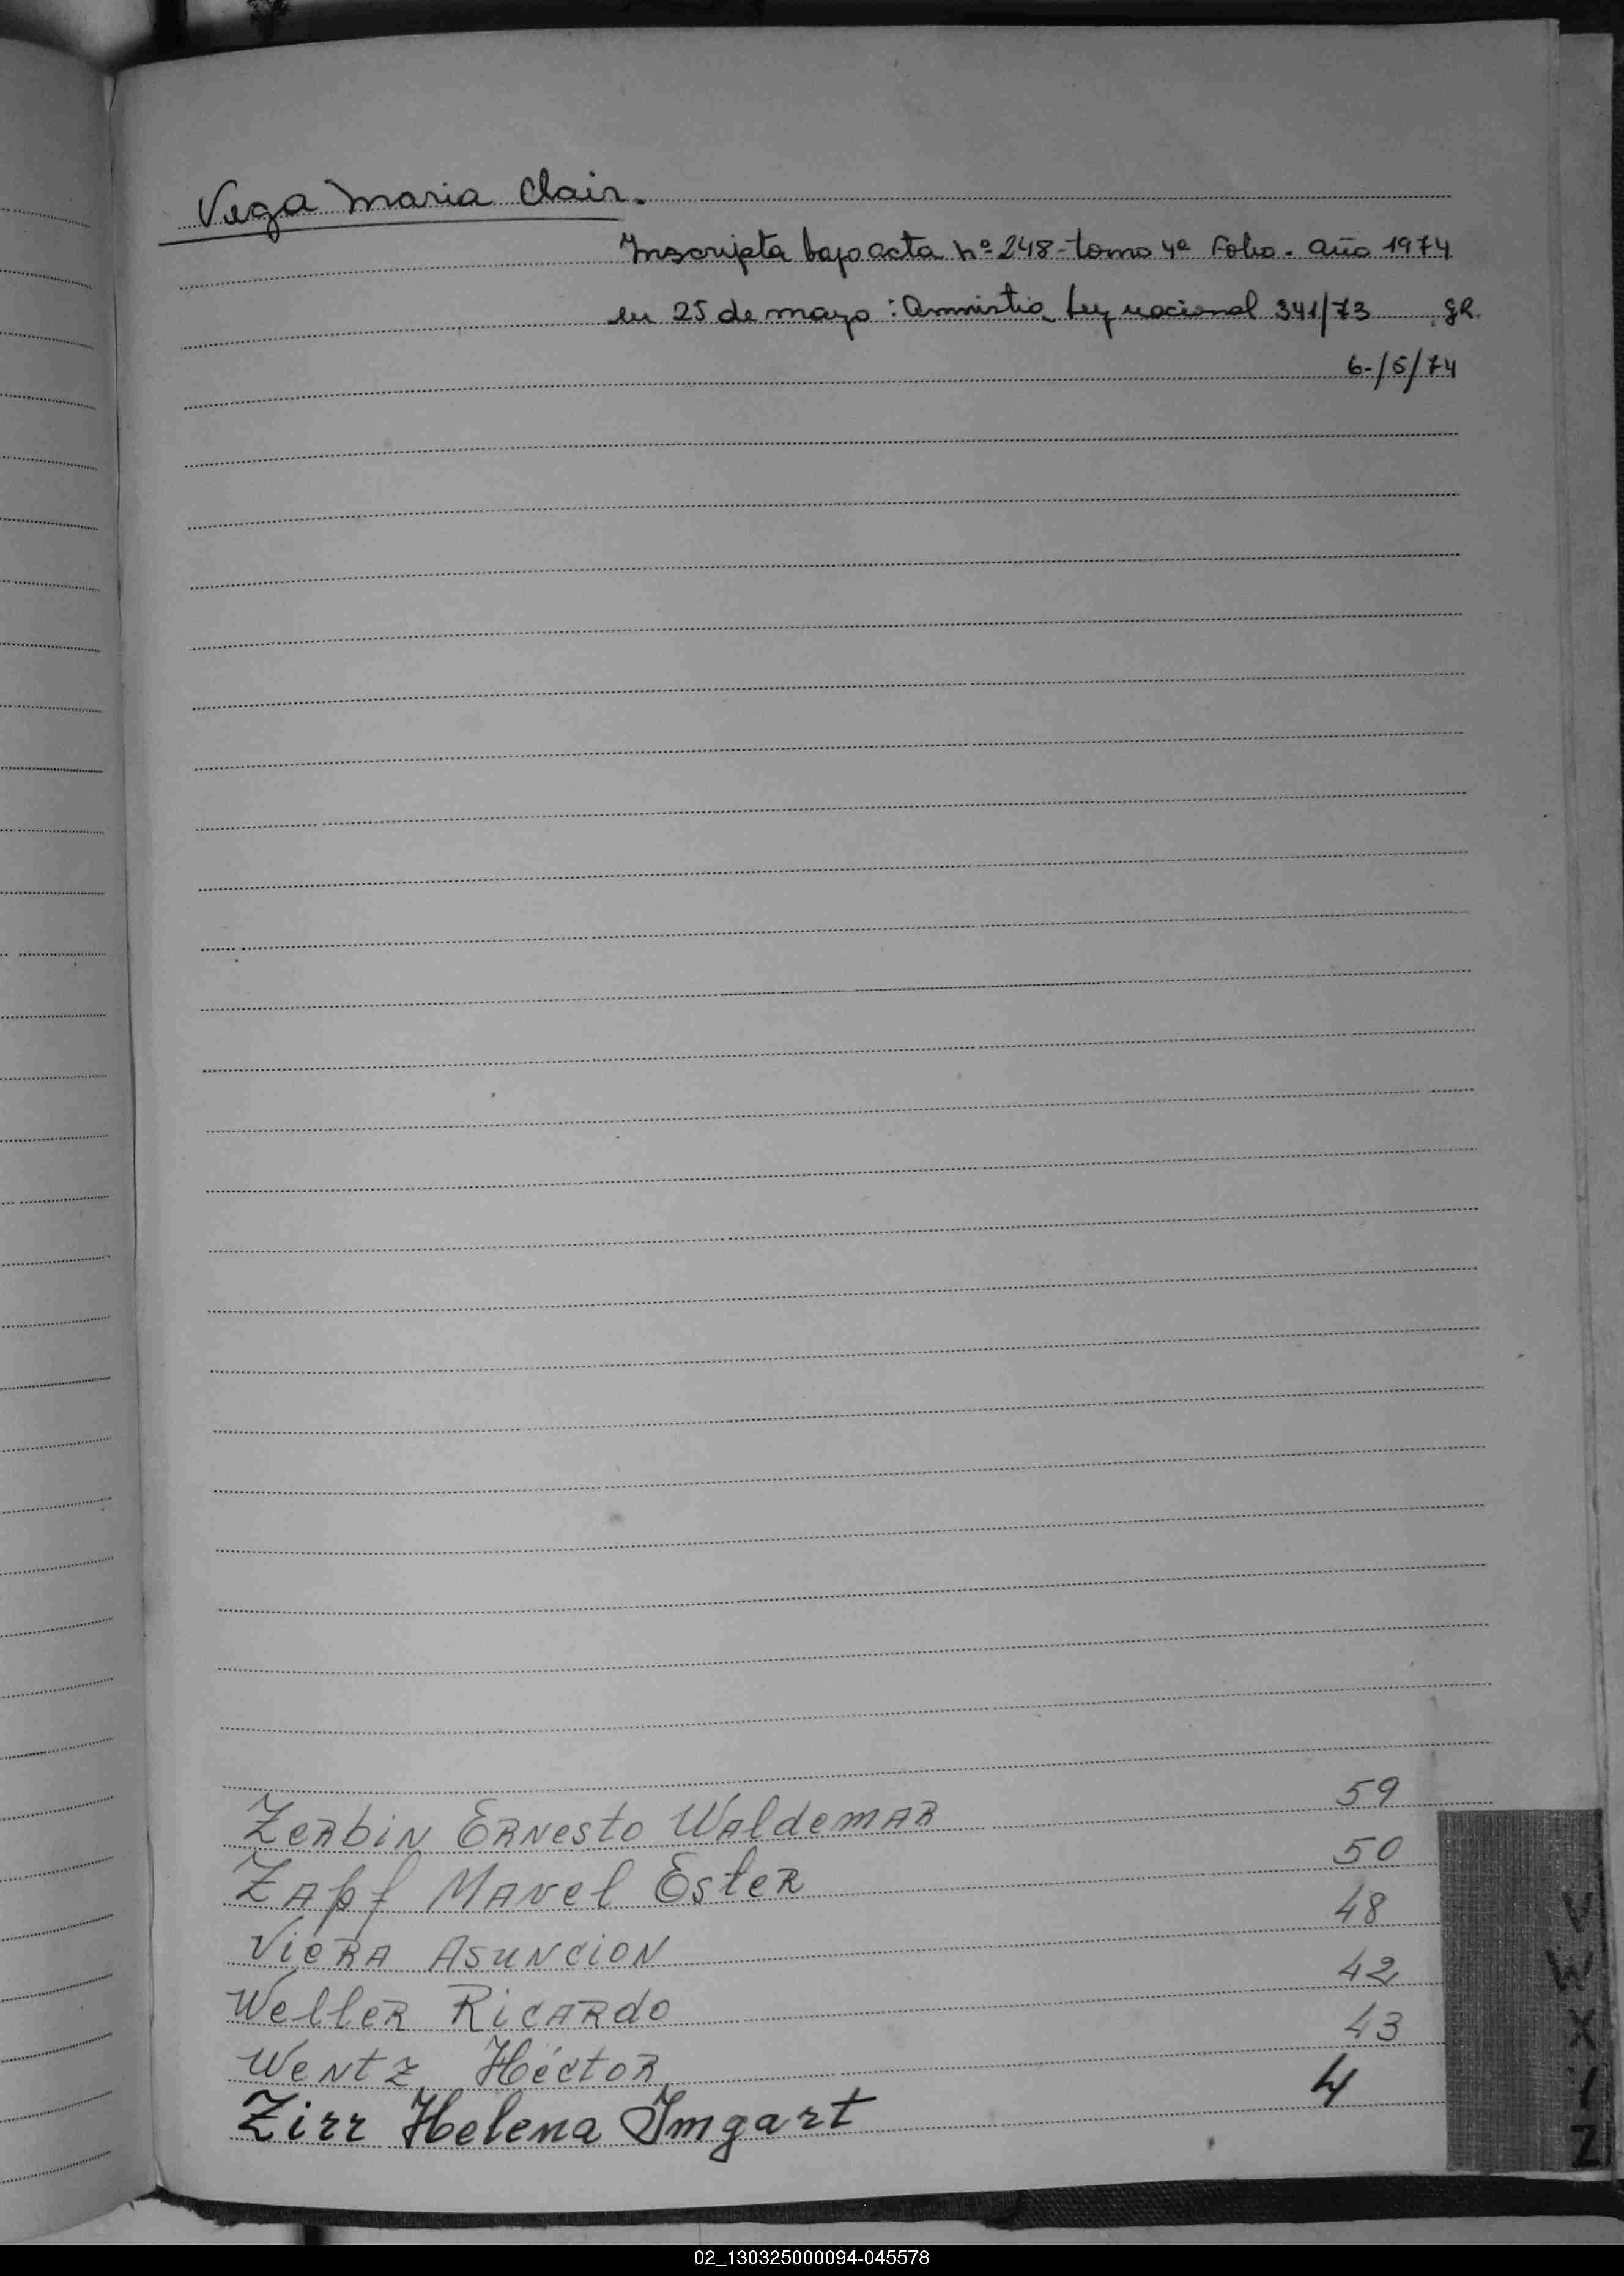 Vega Maria Clair.
Inscripta bajo acta nº 248 - tomo 4º Folio - año 1974
en 25 de mayo : Amnistia Ley nacional 341/73 GR.
6-/5/74
Zerbin Ernesto Waldemar 59
Zapf Mavel Ester 50
Viera Asuncion 48
Weller Ricardo 42
Wentz Héctor 43
Zirr Helena Imgart 4
V
W
X
Y
Z
02_130325000094-045578